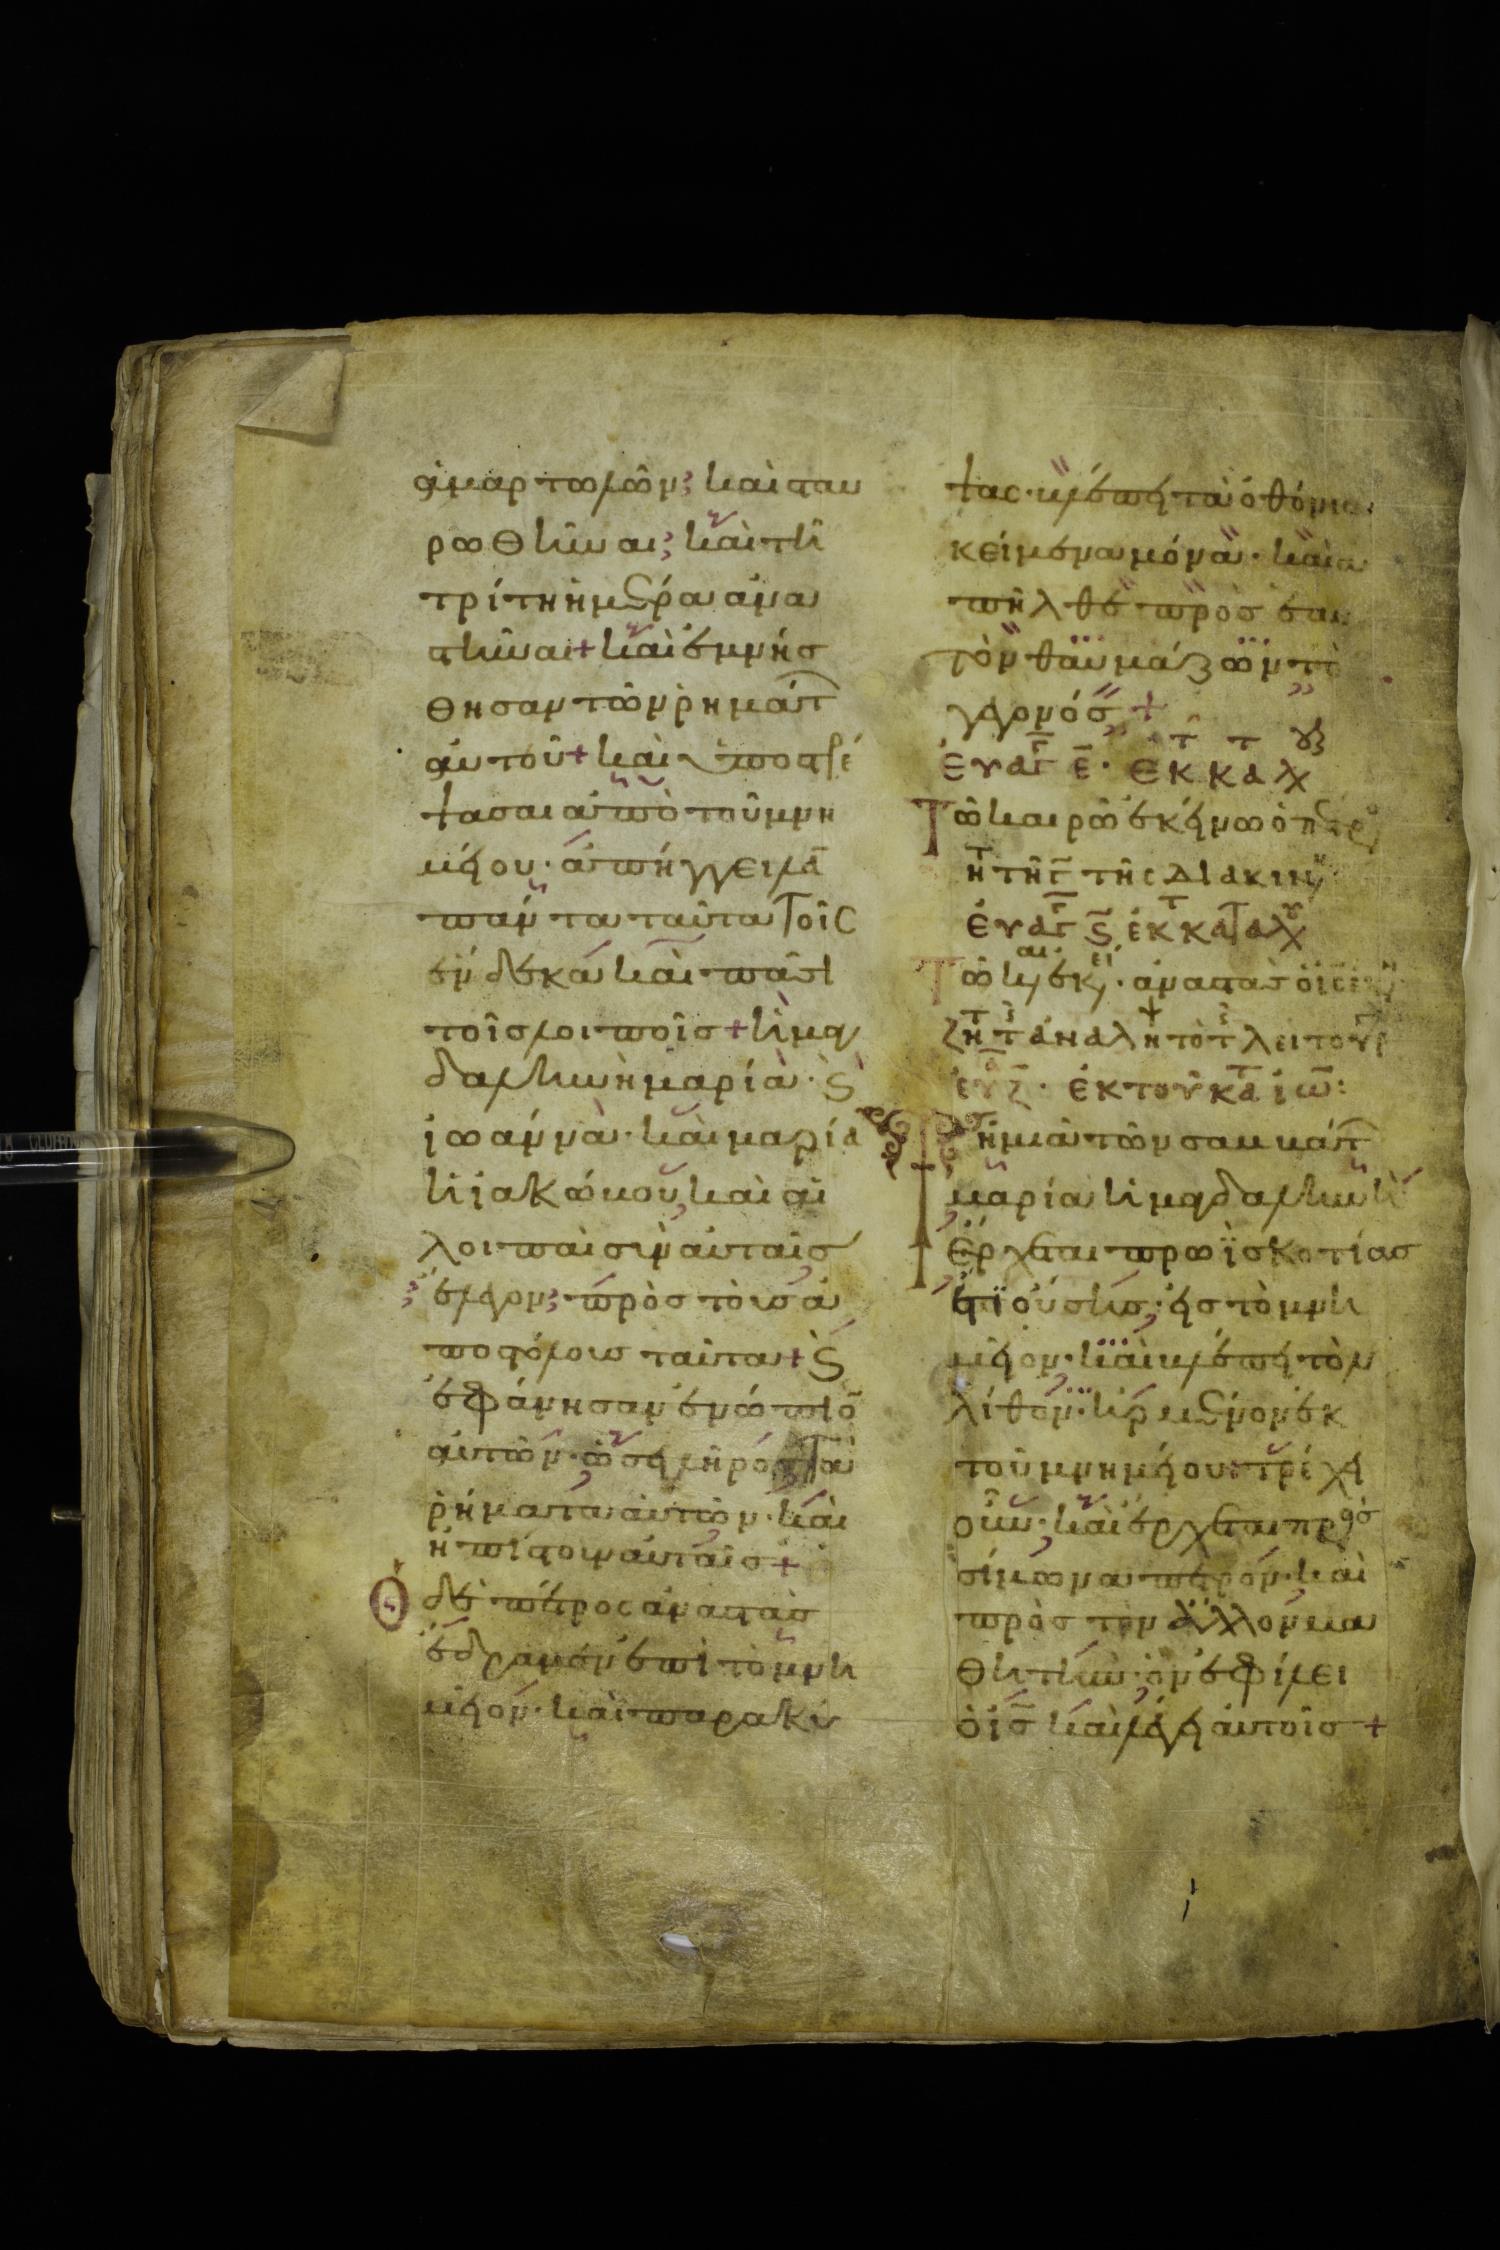 ἁμαρτωλῶν· καὶ σταυ
ρωθῆναι· καὶ τῆ
τρίτη ἡμέρα ἀνα
στῆναι + καὶ ἐμνήσ
θησαν τῶν ῥημάτ
αὐτοῦ + καὶ ὑποστρέ
ψασαι ἀπὸ τοῦ μνη
μείου· ἀπήγγειλα̅
πάντα ταῦτα τοῖς
ἕνδεκα καὶ πᾶσι
τοῖς λοιποῖς + ἡ μαγ
δαληνὴ μαρία· ϗ
ἰωάννα· καὶ μαρία
ἡ ἰακώβου, καὶ αἱ
λοιπαὶ σὺν αὐταῖς
ἔλεγον· πρὸς τοὺς ἀ
ποστόλους ταῦτα + ϗ
ἐφάνησαν ἐνώπιο̅
αὐτῶν· ὡσεὶ λῆρος τὰ
ῥήματα αὐτῶν· καὶ
ἠπίστουν αὐταῖς +
Ὁ δὲ πέτρος ἀναστὰς
ἔδραμεν ἐπὶ τὸ μνη
μεῖον· καὶ παρακύ
ψας· βλέπει τὰ ὀθόνια
κείμενα μόνα· καὶ ἀ
πῆλθε πρὸς ἑαυ
τὸν θαυμάζων τὸ
γεγονός +
ἐυαγ ε̅· ἐκ κα λχ
Τῶ καιρῶ ἐκείνω ὁ πέτρ
ἐυαγ ϛ̅ ἐκ κατα λχ
ἐκ τοῦ κα ἰω̅:
Τῆ μιᾶ τῶν σαββάτ
μαρία ἡ μαγδαληνὴ
ἔρχεται πρωῒ σκοτίας
ἔτι οὔσης· εἰς τὸ μνη
μεῖον· καὶ βλέπει τὸν
λίθον· ἠρμένον ἐκ
τοῦ μνημείου· τρέχει
οὖν· καὶ ἔρχεται πρὸς
σίμωνα πέτρον· καὶ
πρὸς τὸν ἄλλον μα
θητὴν· ὃν ἐφίλει
ὁ ἰς̅ καὶ λέγει αὐτοῖς +